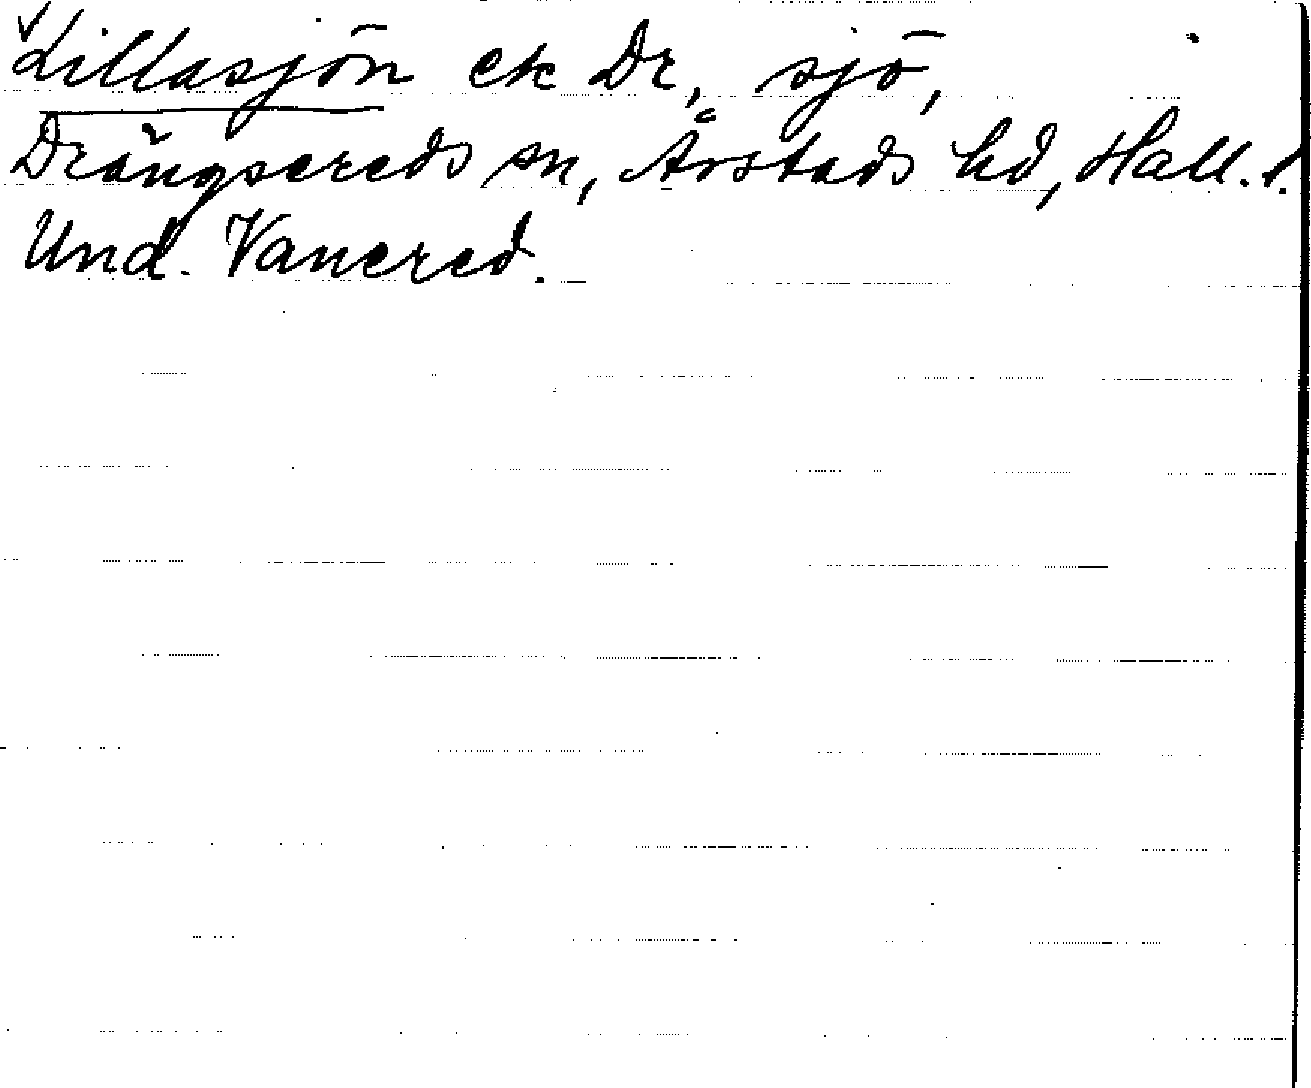 Lillasjön ek Dr, sjö,
Drängsereds sn, Årstads hd, Hall. l.
Und. Vanered.